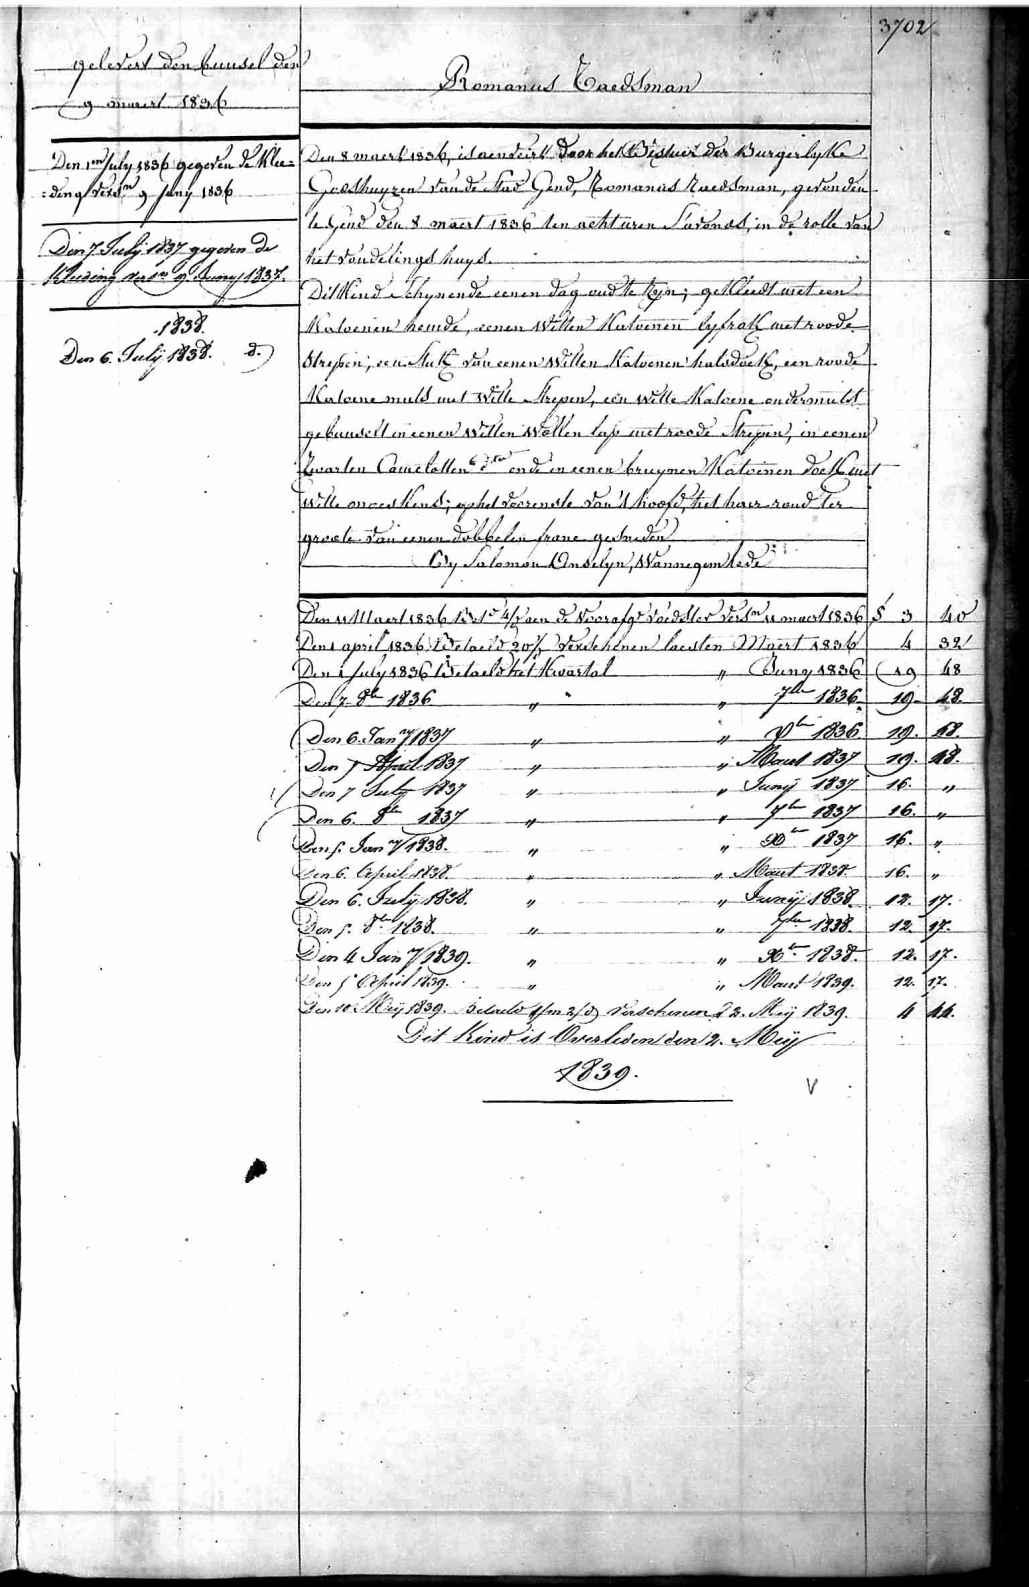 3702
gelevert den bunsel den
9 maert 1836
Romanus Raedsman
Den 1en July 1836 gegeven de Klee=
=ding versn 9 Juny 1836
Den 7. Julij 1837 gegeven de
Kleeding versn 9. Juny 1837.
1838.
Den 6. Julij 1838. d.
Den 8 maert 1836, is aenveird door het Bestuer der Burgerlyke
Godshuyzen van de Stad Gend, Romanus Raedsman, gevonden
te Gend den 8 maert 1836 ten acht uren s'avonds, in de rolle van
het vondelings huys.
Dit Kind schynende eenen dag oud te zyn; gekleedt met een
Katoenen hemde, eenen witten Katoenen lyfrok met roode
strepen; een stuk van eenen witten Katoenen halsdoek, een roode
Katoene muts met witte strepen, een witte Katoene ondermuts
gebunselt in eenen witten wollen lap met roode strepen, in eenen
zwarten Camelotten do ende in eenen bruynen Katoenen doek met
witte noeskens; op het voorenste van 't hoofd, het hair rond ter
groote van eenen dobbelen franc gesneden
By Salomon Anselyn, Wannegem lede
Den 11 Maert 1836 aen de voorafge voedster versn 11 maert 1836 £ 3 40
Den 1 april 1836 Betaeld 20/d verschenen laesten Maert 1836 4 32
Den 1 July 1836 Betaeld het Kwartal " Juny 1836 19 48
Den 7. 8br 1836 " " 7br 1836 19 48.
Den 6. Jany 1837 " " Xbr 1836 19. 48.
Den 7 April 1837 " " Maert 1837 19. 48.
Den 7 July 1837 " " Junij 1837 16. "
Den 6. 8br 1837 " " 7br 1837 16. "
Den 5. Jany 1838. " " Xbr 1837 16. "
Den 6. April 1838. " " Maert 1838. 16. "
Den 6. Julij 1838. " " Junij 1838. 12. 17.
Den 5. 8br 1838. " " 7br 1838. 12. 17.
Den 4 Jany 1839. " " Xbr 1838. 12. 17.
Den 5 April 1839. " " Maert 1839. 12. 17.
Den 10 Meij 1839. Betaeld verschenen 2. Meij 1839. 4 44.
Dit Kind is Overleden den 2. Meij
1839.
V